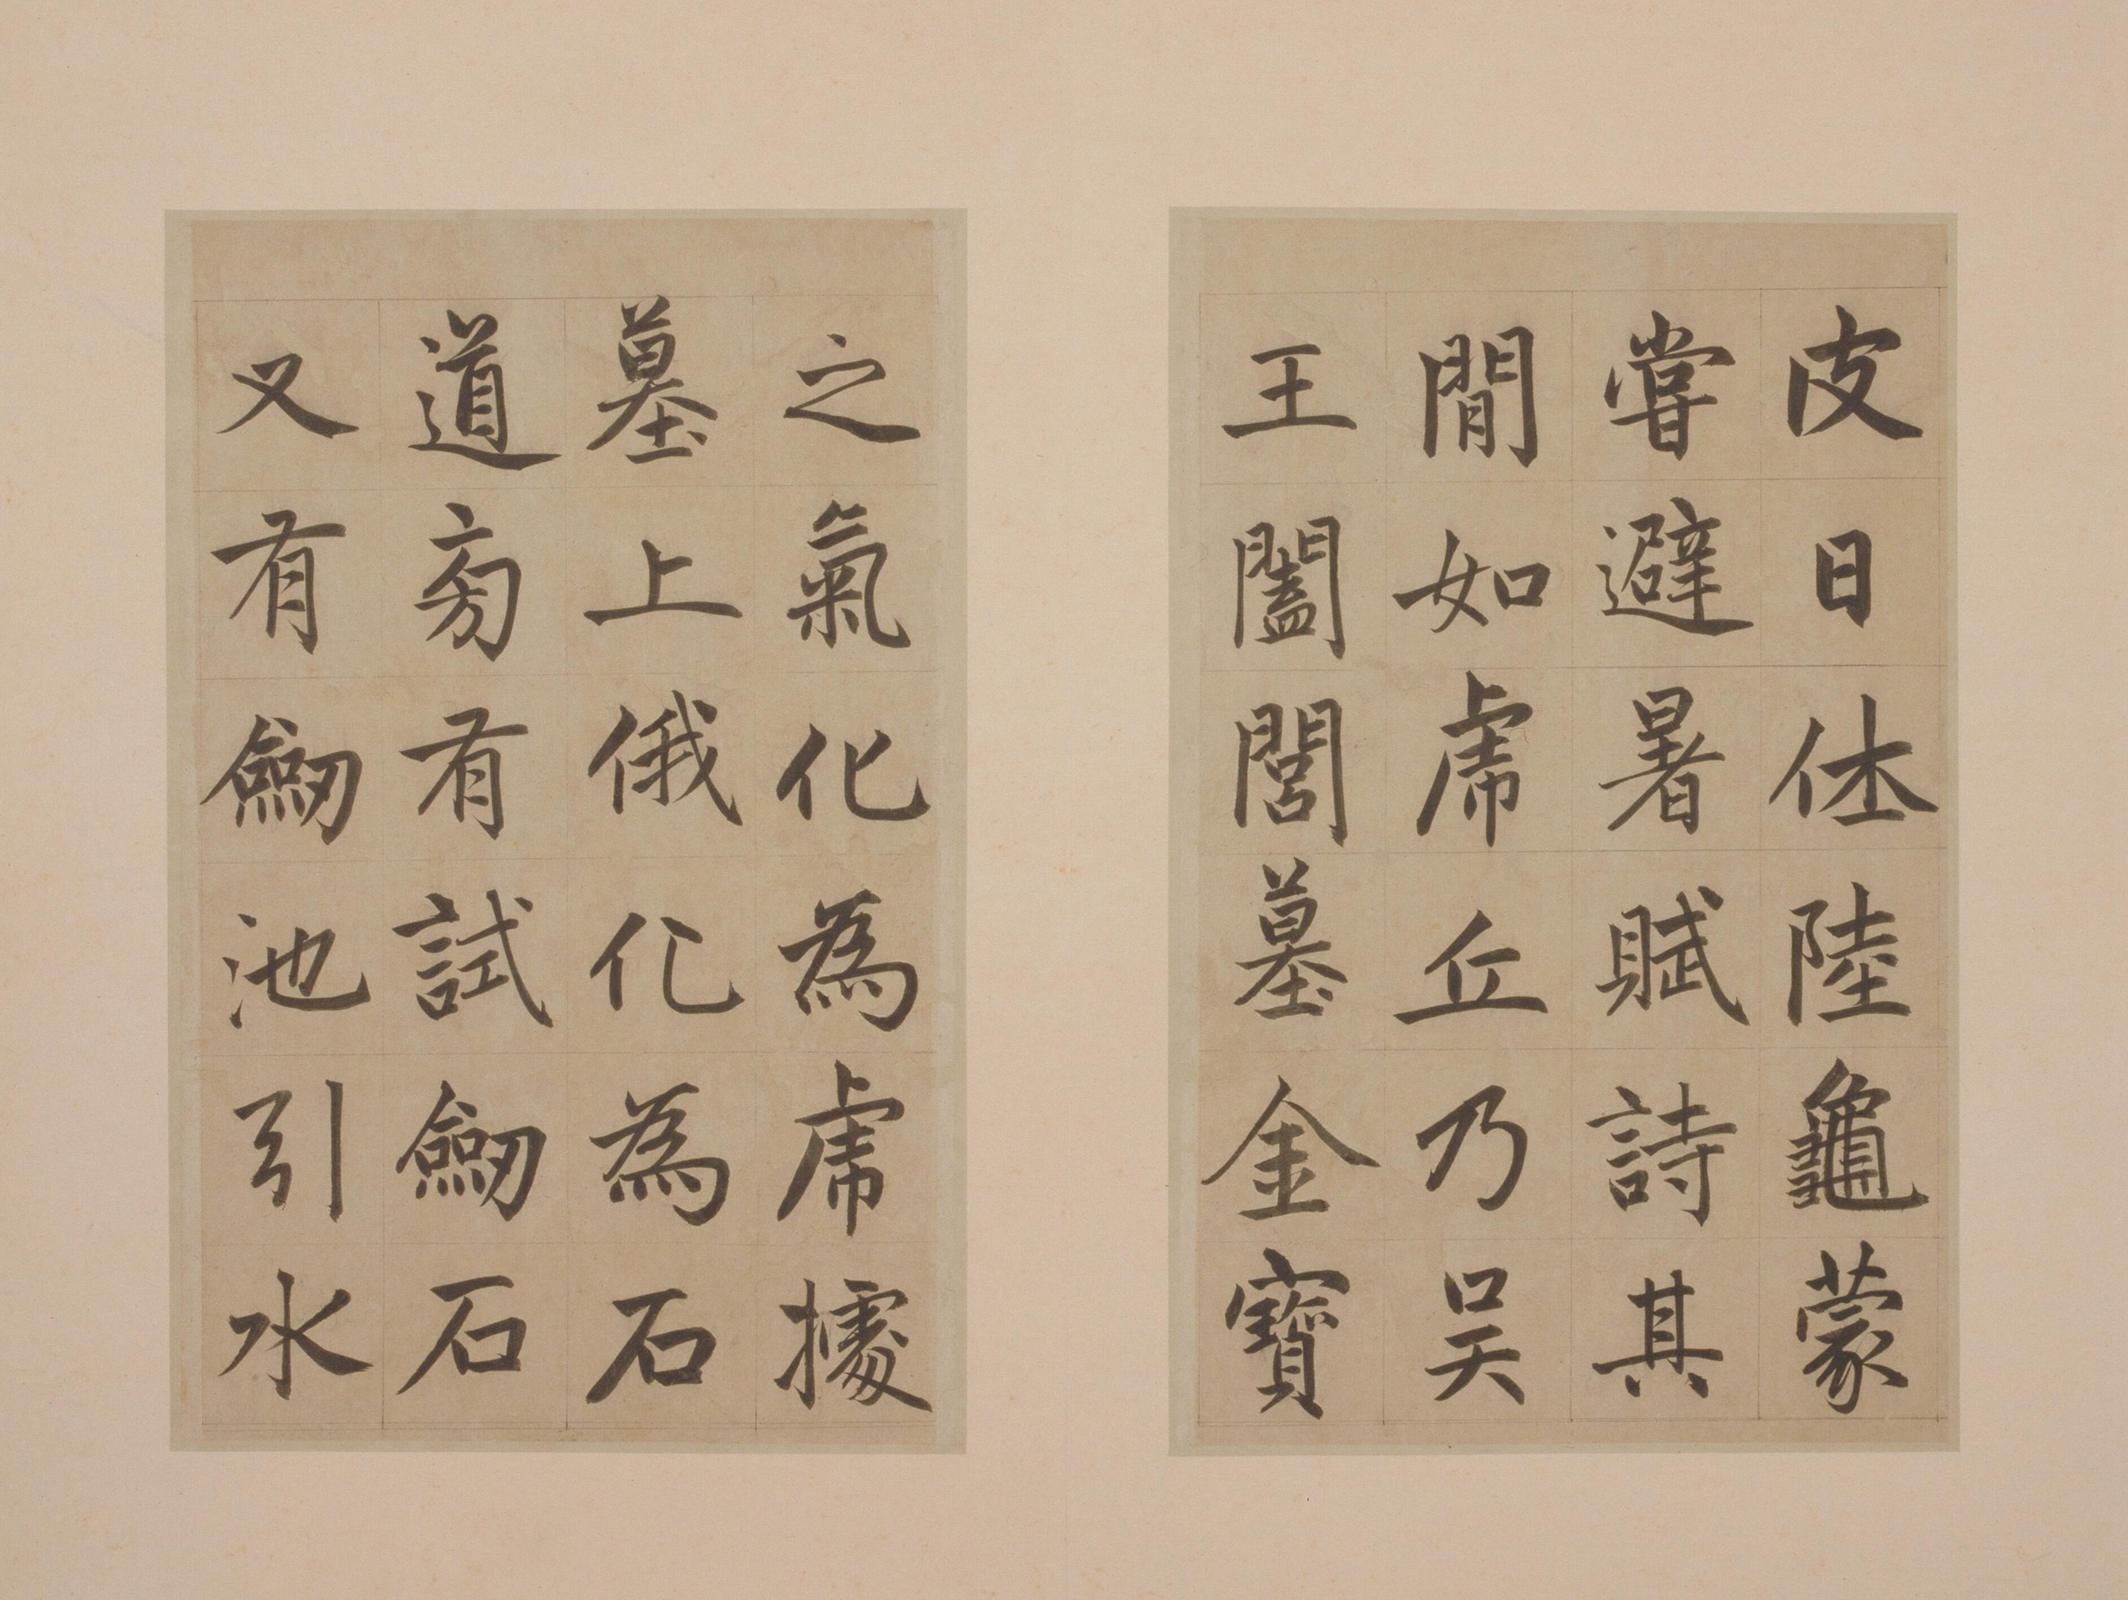 皮日休陸龜蒙
甞避暑賦詩其
閒如虎丘乃吴
王闔閭墓金寳
之氣化為虎據
墓上俄化為石
道旁有試劒石
又有劒池引水